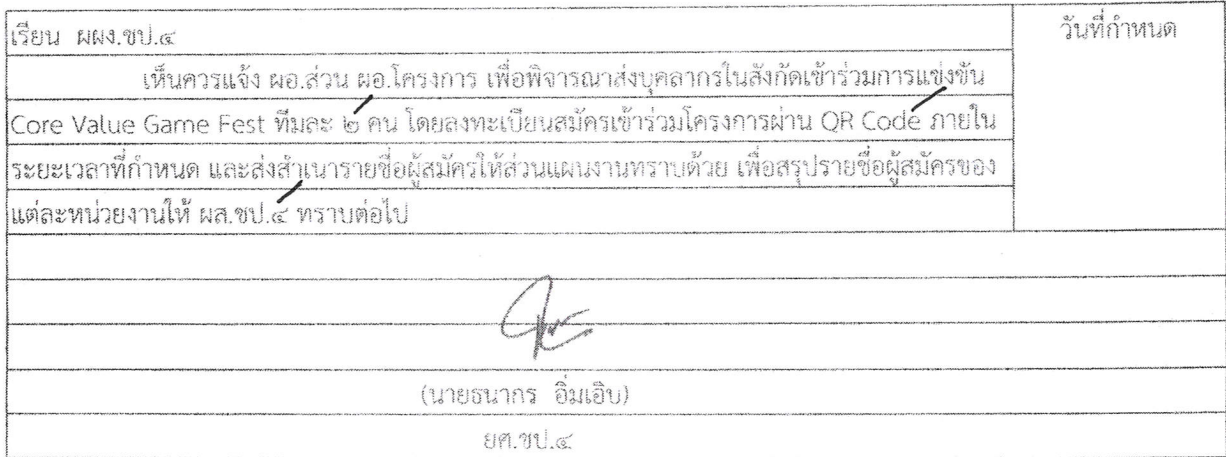 เรียน ผผง.ชป.๔
วันที่กำหนด
เห็นควรแจ้ง ผอ.ส่วน ผอ.โครงการ เพื่อพิจารณาส่งบุคลากรในสังกัดเข้าร่วมการแข่งขัน
Core Value Game Fest ทีมละ ๒ คน โดยลงทะเบียนสมัครเข้าร่วมโครงการผ่าน QR Code ภายใน
ระยะเวลาที่กำหนด และส่งสำเนารายชื่อผู้สมัครให้ส่วนแผนงานทราบด้วย เพื่อสรุปรายชื่อผู้สมัครของ
แต่ละหน่วยงานให้ ผส.ชป.๔ ทราบต่อไป
(นายธนากร อิ่มเอิบ)
ยศ.ชป.๔